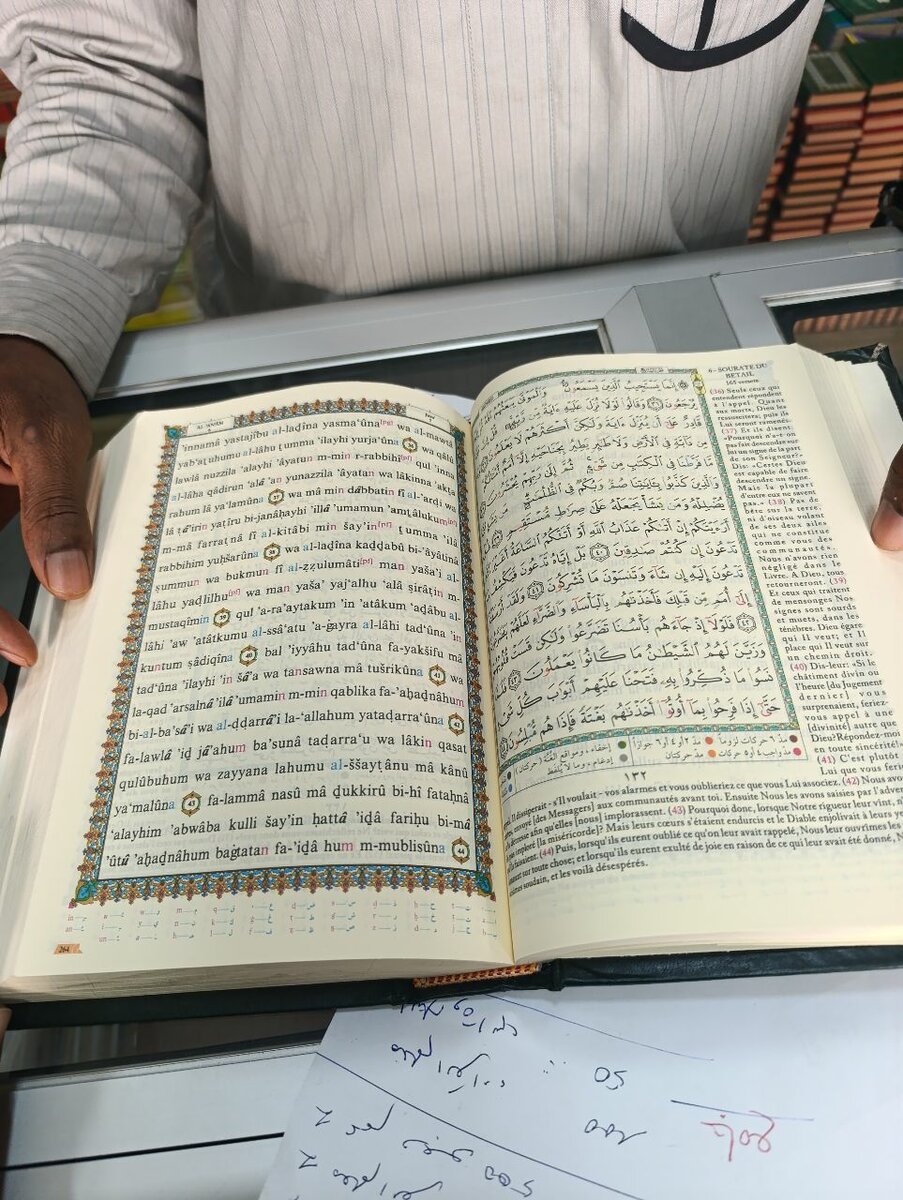 AL-'AN'ÂM
'innamâ yastajîbu al-laḏîna yasma'ûna[pt] wa al-mawtâ
yab'aṯuhumu al-lâhu ṯumma 'ilayhi yurja'ûna 36 wa qâlû
lawlâ nuzzila 'alayhi 'âyatun m-min r-rabbihi[pt] qul 'inna
al-lâha qâdirun 'alâ 'an yunazzila 'âyatan wa lâkinna 'akṯa
rahum lâ ya'lamûna 37 wa mâ min dâbbatin fî al-'arḍi wa
lâ ṭâ'irin yaṭîru bi-janâḥayhi 'illâ 'umamun 'amṯâlukum[pt]
m-mâ farraṭnâ fî al-kitâbi min šay'in[pt] ṯumma 'ilâ
rabbihim yuḥšarûna 38 wa al-laḏîna kaḏḏabû bi-'âyâtinâ
ṣummun wa bukmun fî al-ẓẓulumâti[pt] man yaša'i al-
lâhu yaḍlilhu[pt] wa man yaša' yaj'alhu 'alâ ṣirâṭin m-
mustaqîmin 39 qul 'a-ra'aytakum 'in 'atâkum 'aḏâbu al-
lâhi 'aw 'atâtkumu al-ssâ'atu 'a-ġayra al-lâhi tad'ûna 'in
kuntum ṣâdiqîna 40 bal 'iyyâhu tad'ûna fa-yakšifu mâ
tad'ûna 'ilayhi 'in šâ'a wa tansawna mâ tušrikûna 41 wa
la-qad 'arsalnâ 'ilâ 'umamin m-min qablika fa-'aḫaḏnâhum
bi-al-ba'sâ'i wa al-ḍḍarrâ'i la-'allahum yataḍarra'ûna 42
fa-lawlâ 'iḏ jâ'ahum ba'sunâ taḍarra'u wa lâkin qasat
qulûbuhum wa zayyana lahumu al-ššayṭânu mâ kânû
ya'malûna 43 fa-lammâ nasû mâ ḏukkirû bi-hî fataḥnâ
'alayhim 'abwâba kulli šay'in ḥattâ 'iḏâ fariḥu bi-mâ
'ûtû 'aḫaḏnâhum baġtatan fa-'iḏâ hum m-mublisûna 44
264
إِنَّمَا يَسْتَجِيبُ الَّذِينَ يَسْمَعُونَ وَالْمَوْتَىٰ يَبْعَثُهُمُ
يُرْجَعُونَ ۝٣٦ وَقَالُوا لَوْلَا نُزِّلَ عَلَيْهِ ءَايَةٌ مِّن
قَادِرٌ عَلَىٰ أَن يُنَزِّلَ ءَايَةً وَلَٰكِنَّ أَكْثَرَهُمْ لَا يَعْلَمُونَ
مِن دَابَّةٍ فِي الْأَرْضِ وَلَا طَائِرٍ يَطِيرُ بِجَنَاحَيْهِ إِلَّا أُمَمٌ
مَّا فَرَّطْنَا فِي الْكِتَابِ مِن شَيْءٍ ثُمَّ إِلَىٰ رَبِّهِمْ يُحْشَرُونَ
وَالَّذِينَ كَذَّبُوا بِـَٔايَاتِنَا صُمٌّ وَبُكْمٌ فِي الظُّلُمَاتِ
يُضْلِلْهُ وَمَن يَشَأْ يَجْعَلْهُ عَلَىٰ صِرَاطٍ مُّسْتَقِيمٍ
أَرَءَيْتَكُمْ إِنْ أَتَىٰكُمْ عَذَابُ اللَّهِ أَوْ أَتَتْكُمُ السَّاعَةُ
تَدْعُونَ إِن كُنتُمْ صَادِقِينَ ۝٤٠ بَلْ إِيَّاهُ تَدْعُونَ فَيَكْشِفُ
تَدْعُونَ إِلَيْهِ إِن شَاءَ وَتَنسَوْنَ مَا تُشْرِكُونَ ۝٤١ وَلَقَدْ أَرْسَلْنَا
إِلَىٰ أُمَمٍ مِّن قَبْلِكَ فَأَخَذْنَاهُم بِالْبَأْسَاءِ وَالضَّرَّاءِ لَعَلَّهُمْ
۝٤٢ فَلَوْلَا إِذْ جَاءَهُم بَأْسُنَا تَضَرَّعُوا وَلَٰكِن قَسَتْ قُلُوبُهُمْ
وَزَيَّنَ لَهُمُ الشَّيْطَانُ مَا كَانُوا يَعْمَلُونَ ۝٤٣
نَسُوا مَا ذُكِّرُوا بِهِ فَتَحْنَا عَلَيْهِمْ أَبْوَابَ كُلِّ شَيْءٍ
حَتَّىٰ إِذَا فَرِحُوا بِمَا أُوتُوا أَخَذْنَاهُم بَغْتَةً فَإِذَا هُم مُّبْلِسُونَ
١٣٢
6 - SOURATE DU
BETAIL
165 versets
(36) Seuls ceux qui
entendent répondent
à l'appel. Quant
aux morts, Dieu les
ressuscitera; puis ils
Lui seront ramenés.
(37) Et ils disent:
«Pourquoi n'a-t-on
pas fait descendre sur
lui un signe de la part
de son Seigneur?»
Dis: «Certes Dieu
est capable de faire
descendre un signe.
Mais la plupart
d'entre eux ne savent
pas.» (38) Pas de
bête sur la terre,
ni d'oiseau volant
de ses deux ailes
qui ne constitue
comme vous des
communautés.
Nous n'avons rien
négligé dans le
Livre. A Dieu, tous
retourneront. (39)
Et ceux qui traitent
de mensonges Nos
signes sont sourds
et muets, dans les
ténèbres. Dieu égare
qui Il veut; et Il
place qui Il veut sur
un chemin droit.
(40) Dis-leur: «Si le
châtiment divin ou
l'heure [du Jugement
dernier] vous
surprenaient, feriez-
vous appel à une
[divinité] autre que
Dieu? Répondez-moi
en toute sincérité!»
(41) C'est plutôt
Lui que vous
dissiperait - s'Il voulait - vos alarmes et vous oublieriez ce que vous Lui associez. (42) Nous
envoyé [des Messagers] aux communautés avant toi. Ensuite Nous les avons saisies par
afin qu'elles [nous] implorassent. (43) Pourquoi donc, lorsque Notre rigueur leur vint,
imploré [la miséricorde]? Mais leurs cœurs s'étaient endurcis et le Diable enjolivait à leurs
faisaient. (44) Puis, lorsqu'ils eurent oublié ce qu'on leur avait rappelé, Nous leur ouvrîmes les
sur toute chose; et lorsqu'ils eurent exulté de joie en raison de ce qui leur avait été donné,
soudain, et les voilà désespérés.
50
200
500